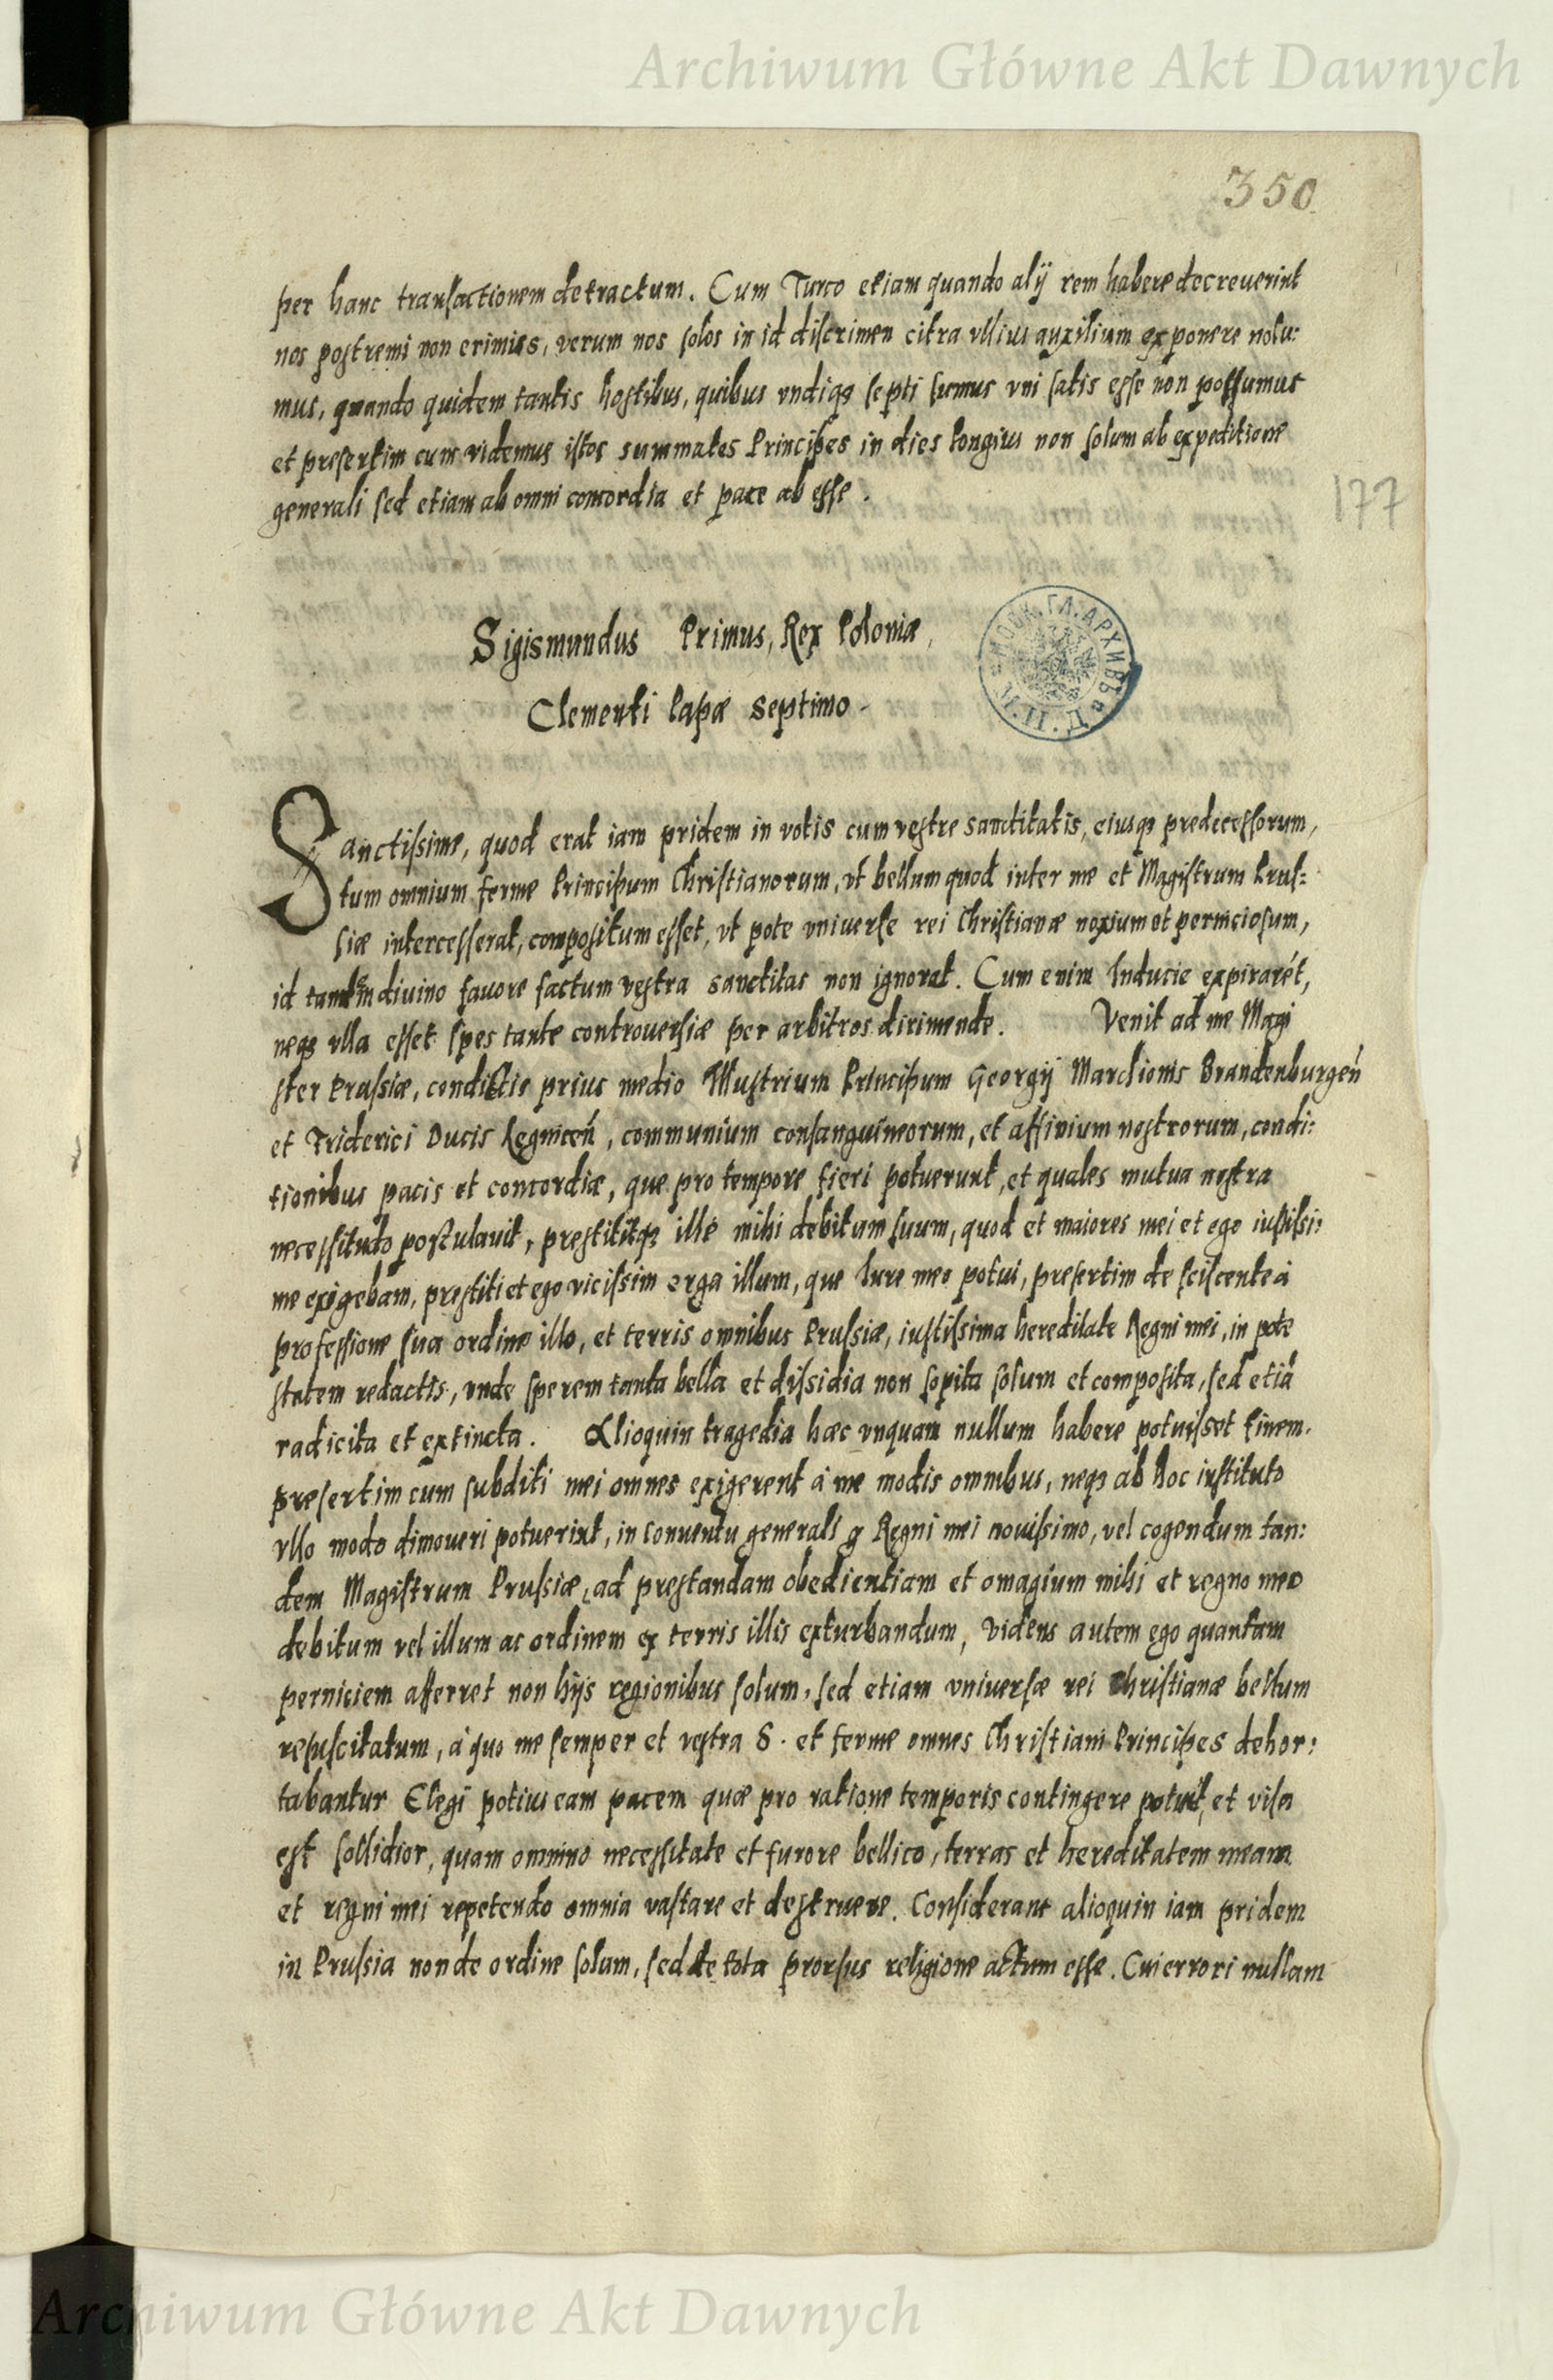 Archiwum Główne Akt Dawnych
350
per hanc transactionem detractum. Cum Turco etiam quando alij rem habere decreuerint
nos postremi non erimus, verum nos solos in id discrimen citra ullius auxilium exponere nolu:
mus, quando quidem tantis hostibus, quibus vndiqꝫ septi sumus vni satis esse non possumus
et presertim cum videmus istos summates Principes in dies longius non solum ab expeditione
generali sed etiam ab omni concordia et pace ab esse.
177
Sigismundus Primus, Rex Poloniæ,
Clementi Papæ Septimo.
МОСК. ГЛ. АРХИВЪ
Sanctissime, quod erat iam pridem in votis cum vestre sanctitatis, eiusqꝫ predecessorum,
tum omnium ferme Principum Christianorum, vt bellum quod inter me et Magistrum Prus:
siæ intercesserat, compositum esset, vt pote vniverse rei Christianæ noxium et perniciosum,
id tandem divino favore factum vestra sanctitas non ignorat. Cum enim Inducie expirarēt,
neqꝫ vlla esset spes tante controversiæ per arbitros dirimende. Venit ad me Magi
ster Prussiæ, condictis prius medio Illustrium Principum Georgij Marchionis Brandenburgeń
et Friderici Ducis Legniceń, communium consanguineorum, et affinium nostrorum, condi:
tionibus pacis et concordiæ, que pro tempore fieri potuerunt, et quales mutua nostra
necessitudo postulavit, prestititqꝫ ille mihi debitum suum, quod et maiores mei et ego iustissi:
me exigebam, prestiti et ego vicissim erga illum, que Iure meo potui, presertim desciscente à
professione sua ordine illo, et terris omnibus Prussiæ, iustissima hereditate Regni mei, in pote
statem redactis, vnde sperem tanta bella et dissidia non sopita solum et composita, sed etiā
radicita et extincta. Alioquin tragedia hæc vnquam nullum habere potuisset finem.
presertim cum subditi mei omnes exigerent à me modis omnibus, neqꝫ ab hoc instituto
vllo modo dimoveri potuerint, in conventu generali Regni mei novissimo, vel cogendum tan:
dem Magistrum Prussiæ, ad prestandam obedientiam et omagium mihi et regno meo
debitum vel illum ac ordinem ex terris illis exturbandum, Videns autem ego quantam
perniciem afferret non hijs regionibus solum, sed etiam vniversæ rei Christianæ bellum
resuscitatum, à quo me semper et vestra S. et ferme omnes Christiani Principes dehor:
tabantur Elegi potius eam pacem quæ pro ratione temporis contingere potuit, et visa
est sollidior, quam omnino necessitate et furore bellico, terras et hereditatem meam
et regni mei repetendo omnia vastare et destruere. Considerans alioquin iam pridem
in Prussia non de ordine solum, sed de tota prorsus religione actum esse. Cui errori nullam
Archiwum Główne Akt Dawnych